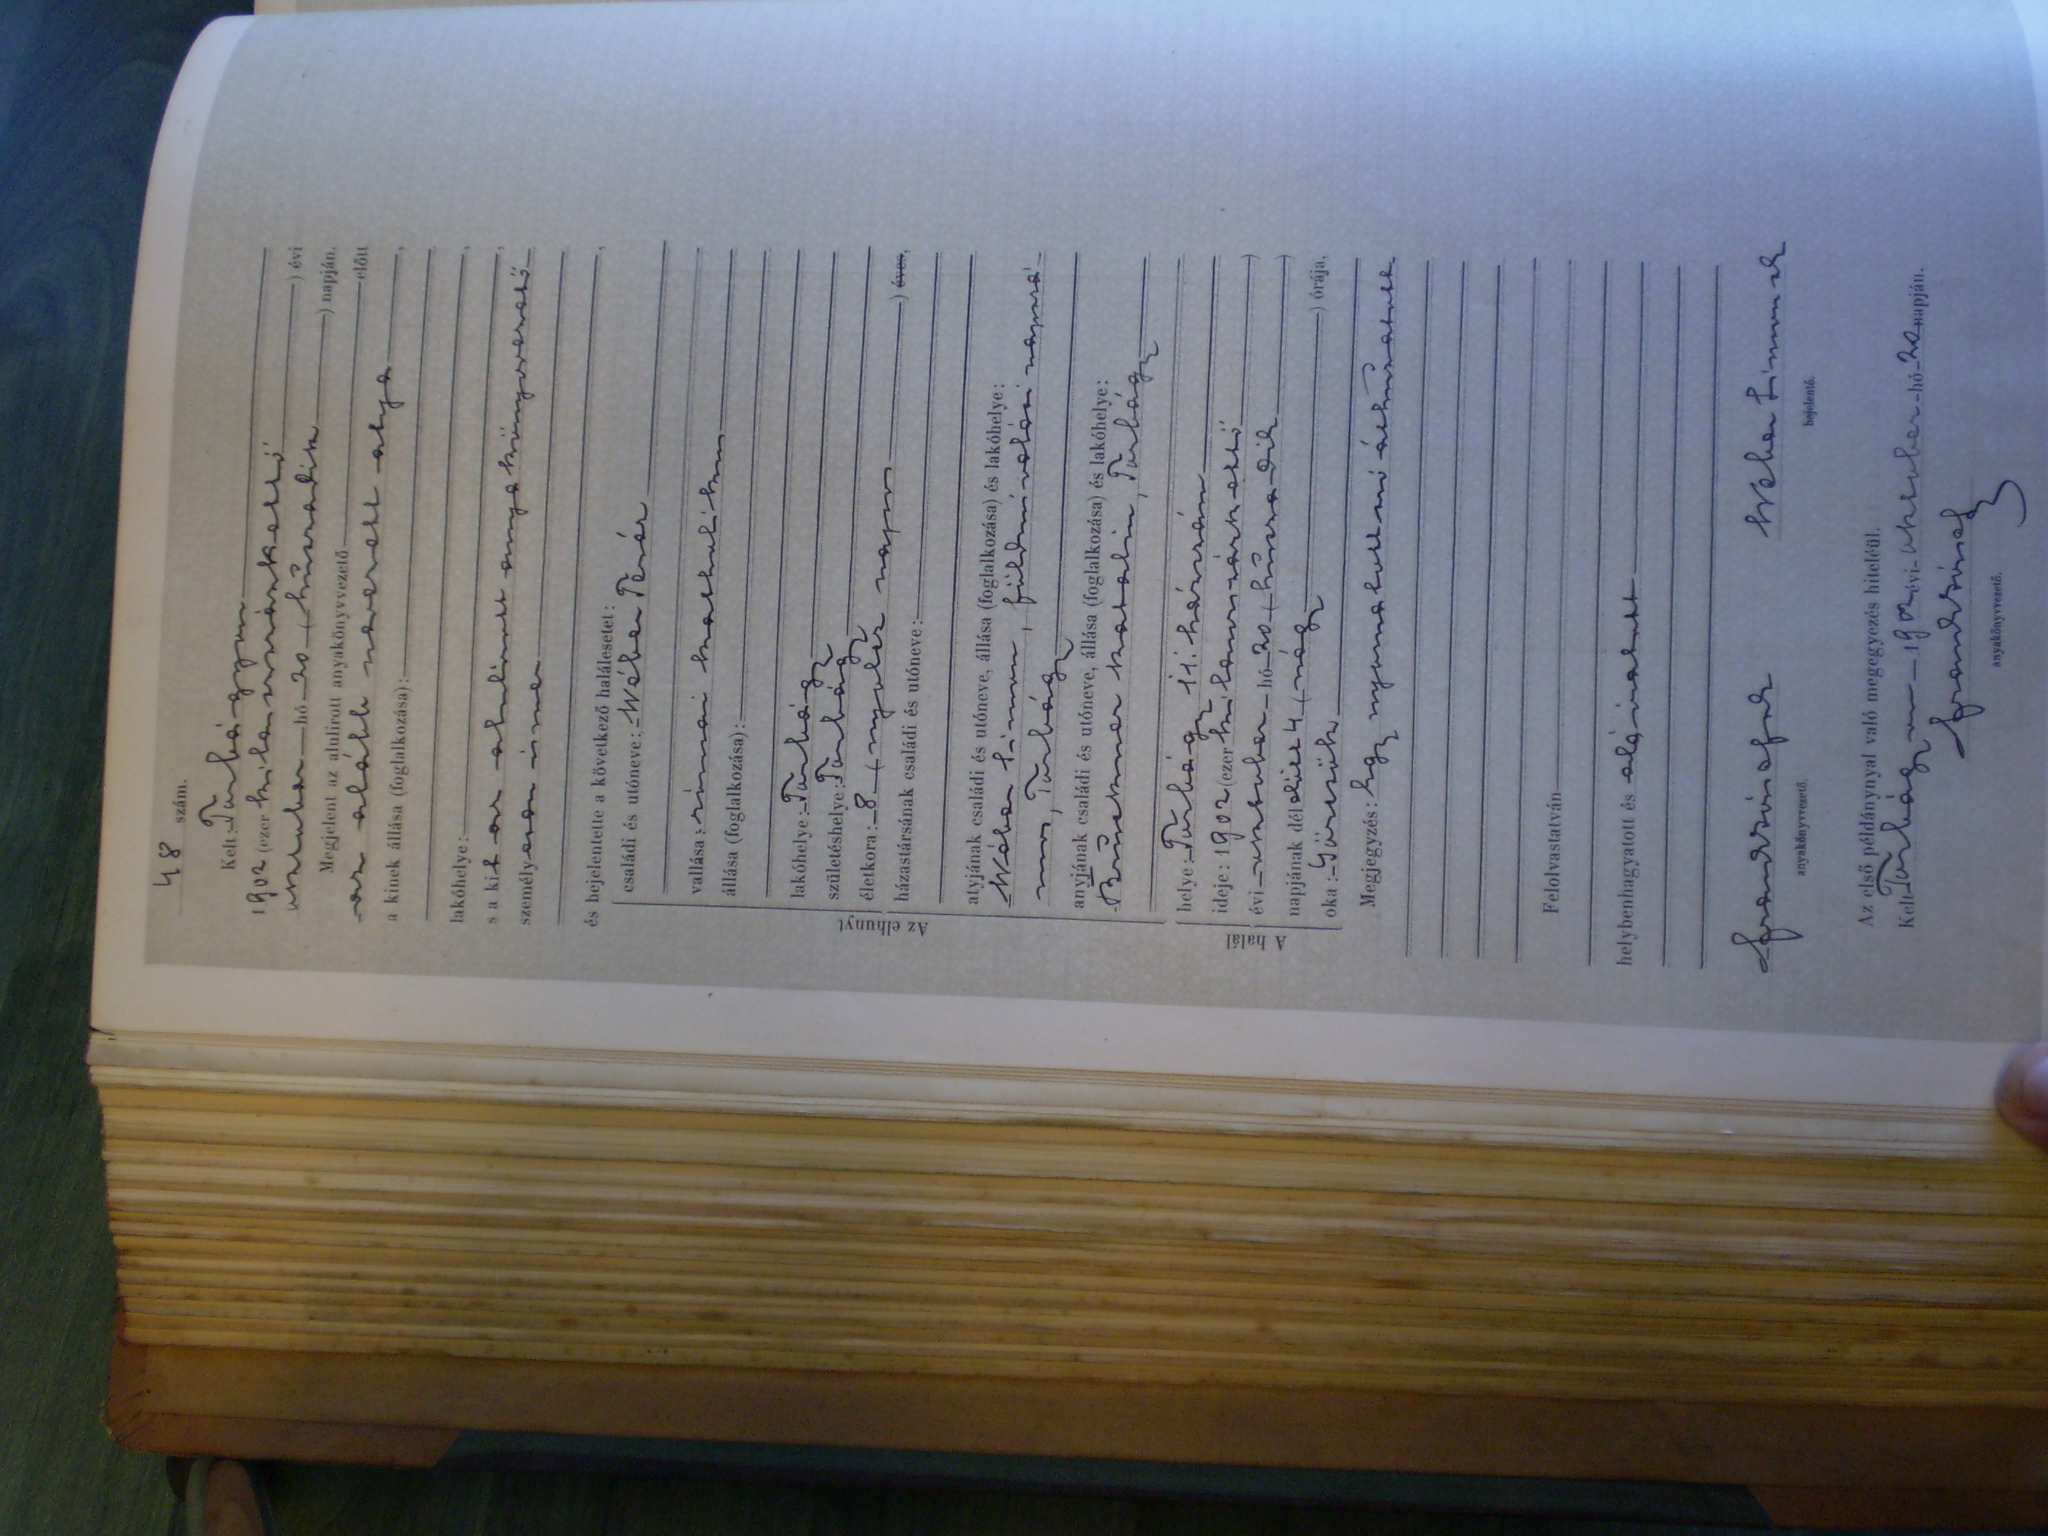 48 szám.
Kelt: Turbágyon
1902 (ezer kilenczszázkettő) évi
október hó 20 (huszadik) napján.
Megjelent az alulirott anyakönyvvezető előtt
az alább nevezett atya,
a kinek állása (foglalkozása):
lakóhelye:
s a kit az alulirott anyakönyvvezető
személyesen ismer
és bejelentette a következő halálesetet:
Az elhunyt
családi és utóneve: Wéber Teréz
vallása: római katholikus
állása (foglalkozása):
lakóhelye: Turbágy
születéshelye: Turbágy
életkora: 8 (nyolcz napos) éves,
házastársának családi és utóneve:
atyjának családi és utóneve, állása (foglalkozása) és lakóhelye:
Wéber Simon, földmívelési napszá-
mos, Turbágy
anyjának családi és utóneve, állása (foglalkozása) és lakóhelye:
Katalin, Turbágy
A halál
helye: Turbágy 11. házszám
ideje: 1902 (ezer kilenczszázkettő)
évi október hó 20 (huszadik)
napjának délelőtt 4 (négy) órája,
oka: Görcsök
Megjegyzés: Egy nyomtatott szó áthúzatott
Felolvastatván
helybenhagyatott és aláíratott
Wéber Simon
anyakönyvvezető. bejelentő.
Az első példánynyal való megegyezés hiteléül.
Kelt Turbágyon 1902 évi október hó 20 napján.
anyakönyvvezető.